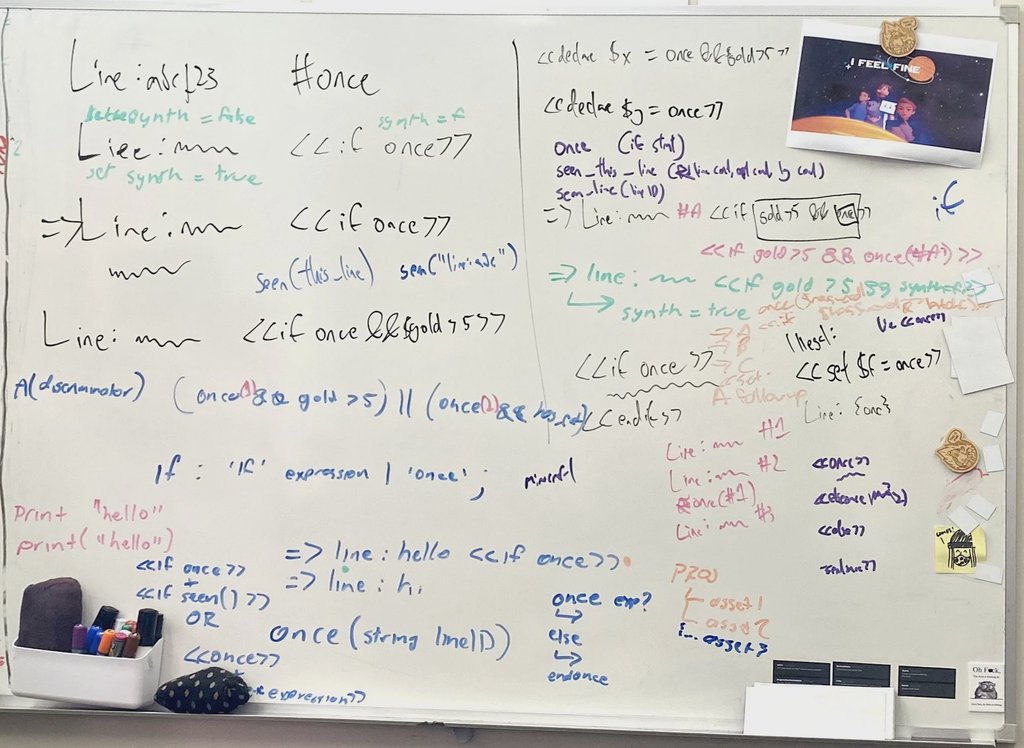 Line: abc123 #once
synth = false
synth = f
Line: <<if once>>
set synth = true
=> Line: <<if once>>
seen(this_line) seen("line:abc")
Line: <<if once && $gold >5>>
A(discriminator) (once(1) && gold >5) || (once(2) &&
If : 'If' expression | 'once' ;
print "hello"
print("hello")
=> line: hello <<if once>>
=> line: hi
<<if once>>
+
<<if seen()>>
OR
<<once>>
expression>>
once(string lineID)
once exp?
else
endonce
<<declare $x = once && $gold >5>>
<<declare $y = once>>
once (if stmt)
seen_this_line
seen_line(line ID)
=> Line: #A <<if gold >5 && once>>
if
<<if gold >5 && once(#A)>>
=> line: <<if gold >5 &&
synth = true
<<if once>>
<<endif>>
-> A
-> B
-> C
A followup
Illegal:
<<set $f = once>>
Line: {once}
Line: #1
Line: #2
once(#1)
Line: #3
<<once>>
<<else>>
endonce>>
asset 1
asset 2
asset 3
I FEEL FINE